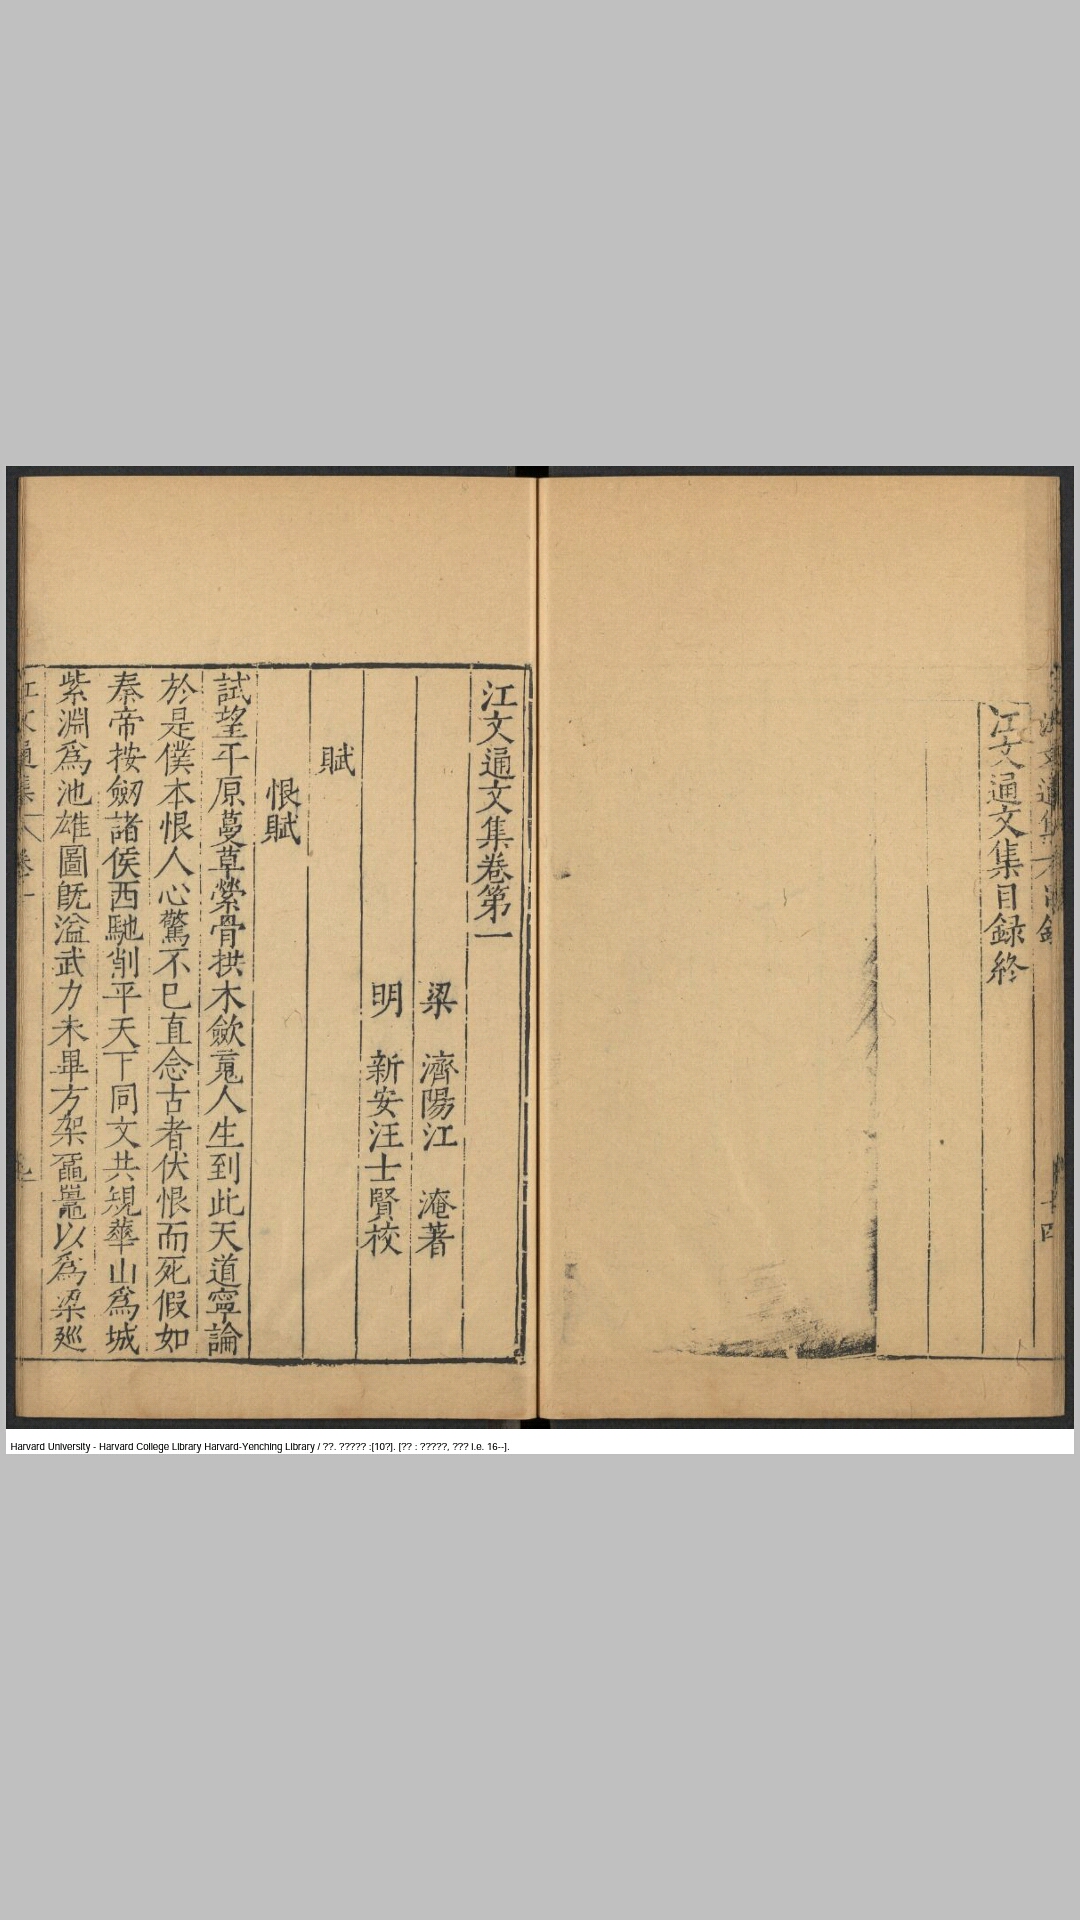 江文通文集目録終
江文通文集卷第一
梁 濟陽江 淹著
明 新安汪士賢校
賦
恨賦
試望平原蔓草縈骨拱木歛䰟人生到此天道寧論
於是僕本恨人心驚不已直念古者伏恨而死假如
秦帝按劒諸侯西馳削平天下同文共規華山爲城
紫淵爲池雄圖旣溢武力未畢方架黿鼉以爲梁廵
Harvard University - Harvard College Library Harvard-Yenching Library / ??. ????? :[10?]. [?? : ?????, ??? i.e. 16--].